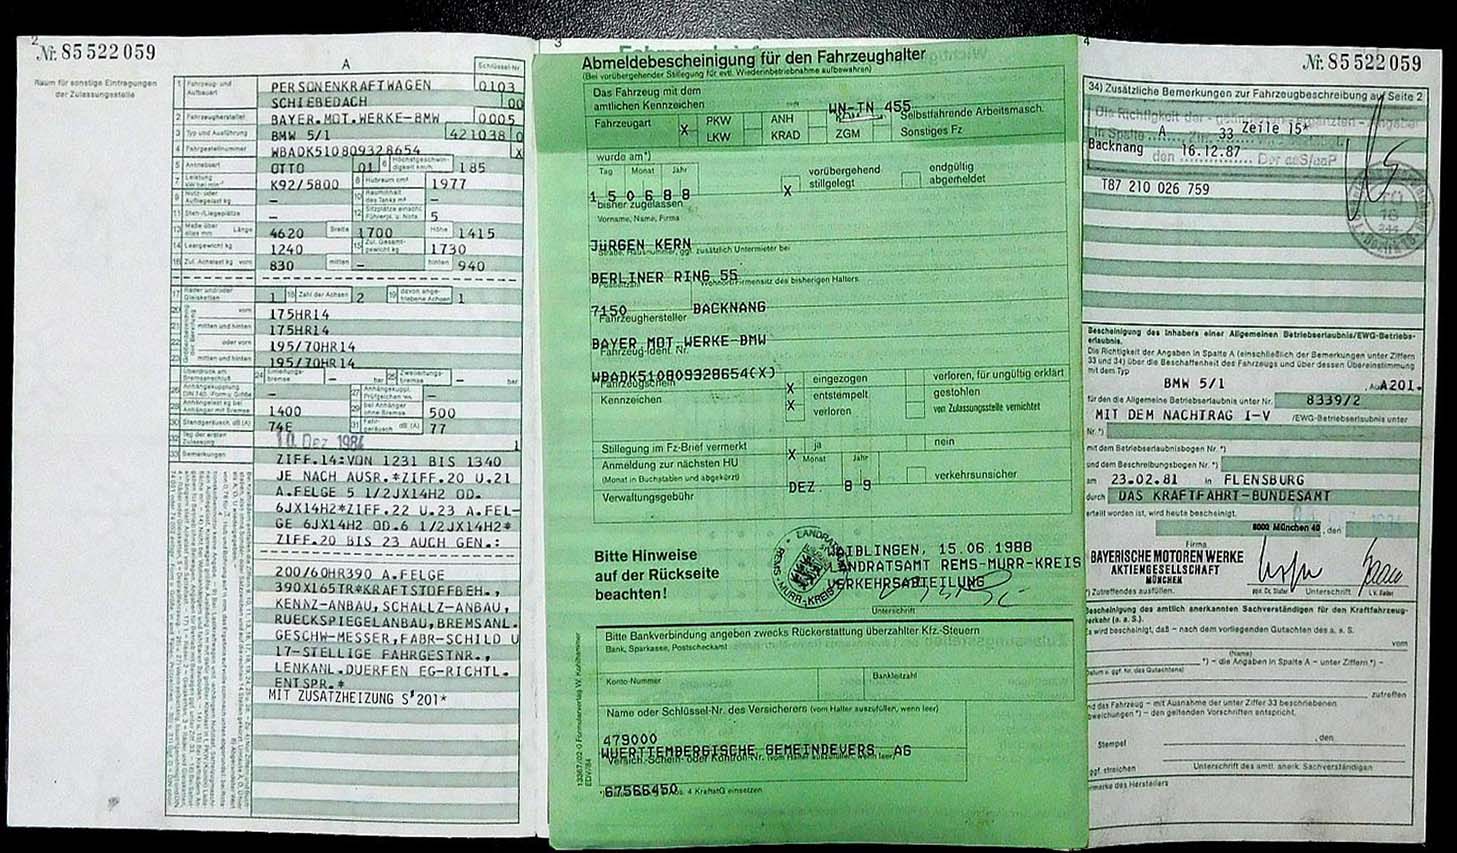 Nr. 85522059
Raum für sonstige Eintragungen
der Zulassungsstelle
A
Schlüssel-Nr.
1 Fahrzeug- und Aufbauart PERSONENKRAFTWAGEN 0103
SCHIEBEDACH 00
2 Fahrzeughersteller BAYER.MOT.WERKE-BMW 0005
3 Typ und Ausführung BMW 5/1 421038 0
4 Fahrgestellnummer WBADK510809328654 X
5 Antriebsart OTTO 01 6 Höchstgeschwindigkeit km/h 185
7 Leistung K92/5800 8 Hubraum cm³ 1977
9 Nutz- oder Aufliegelast kg – 10 Rauminhalt des Tanks m³ –
11 Steh-/Liegeplätze – 12 Sitzplätze einschl. Führerpl. u. Nots. 5
13 Maße über alles mm Länge 4620 Breite 1700 Höhe 1415
14 Leergewicht kg 1240 15 Zul. Gesamtgewicht kg 1730
16 Zul. Achslast kg vorn 830 mitten – hinten 940
17 Räder und/oder Gleisketten 1 18 Zahl der Achsen 2 19 davon angetriebene Achsen 1
20 vorn 175HR14
21 mitten und hinten 175HR14
22 oder vorn 195/70HR14
23 mitten und hinten 195/70HR14
Überdruck am Bremsanschluß 24 Einleitungsbremse – bar 25 Zweileitungsbremse – bar
26 Anhängekupplung DIN 740.. Form u. Größe – 27 Anhängekuppl. Prüfzeichen –
28 Anhängelast kg bei Anhänger mit Bremse 1400 29 bei Anhänger ohne Bremse 500
30 Standgeräusch dB (A) 74E 31 Fahrgeräusch dB (A) 77
32 Tag der ersten Zulassung 10. Dez. 1984 1
33 Bemerkungen
ZIFF.14:VON 1231 BIS 1340
JE NACH AUSR.*ZIFF.20 U.21
A.FELGE 5 1/2JX14H2 OD.
6JX14H2*ZIFF.22 U.23 A.FEL-
GE 6JX14H2 OD.6 1/2JX14H2*
ZIFF.20 BIS 23 AUCH GEN.:
200/60HR390 A.FELGE
390X165TR*KRAFTSTOFFBEH.,
KENNZ-ANBAU,SCHALLZ-ANBAU,
RUECKSPIEGELANBAU,BREMSANL.
GESCHW-MESSER,FABR-SCHILD U
17-STELLIGE FAHRGESTNR.,
LENKANL.DUERFEN EG-RICHTL.
ENTSPR.*
MIT ZUSATZHEIZUNG S'201*
3
Abmeldebescheinigung für den Fahrzeughalter
(Bei vorübergehender Stillegung für evtl. Wiederinbetriebnahme aufbewahren)
Das Fahrzeug mit dem
amtlichen Kennzeichen WN-TN 455
Fahrzeugart X PKW ANH Selbstfahrende Arbeitsmasch.
LKW KRAD ZGM Sonstiges Fz
wurde am*)
Tag Monat Jahr
150688
X vorübergehend stillgelegt
endgültig abgemeldet
bisher zugelassen
Vorname, Name, Firma
JüRGEN KERN
Straße, Haus-Nummer, ggf. zusätzlich Untermieter bei
BERLINER RING 55
Postleitzahl Wohnort/Firmensitz des bisherigen Halters
7150 BACKNANG
Fahrzeughersteller
BAYER.MOT.WERKE-BMW
Fahrzeug-Ident. Nr.
WBADK510809328654(X)
Fahrzeugschein X eingezogen verloren, für ungültig erklärt
Kennzeichen X entstempelt gestohlen
verloren von Zulassungsstelle vernichtet
Stillegung im Fz-Brief vermerkt X ja nein
Anmeldung zur nächsten HU Monat Jahr
(Monat in Buchstaben und abgekürzt) DEZ. 89 verkehrsunsicher
Verwaltungsgebühr
Bitte Hinweise
auf der Rückseite
beachten!
LANDRATSAMT REMS-MURR-KREIS
WAIBLINGEN, 15.06.1988
LANDRATSAMT REMS-MURR-KREIS
VERKEHRSABTEILUNG
Unterschrift
Bitte Bankverbindung angeben zwecks Rückerstattung überzahlter Kfz.-Steuern
Bank, Sparkasse, Postscheckamt
Konto-Nummer Bankleitzahl
Name oder Schlüssel-Nr. des Versicherers (vom Halter auszufüllen, wenn leer)
479000
WUERTTEMBERGISCHE GEMEINDEVERS. AG
Versich.-Schein- oder Kontroll-Nr. (vom Halter auszufüllen, wenn leer)
67566450
4 KraftStG einsetzen
4
Nr. 85522059
34) Zusätzliche Bemerkungen zur Fahrzeugbeschreibung auf Seite 2
Die Richtigkeit der - - ergänzten - Angaben
in Spalte A Ziff. 33 Zeile 15*
Backnang den 16.12.87
T87 210 026 759
Bescheinigung des Inhabers einer Allgemeinen Betriebserlaubnis/EWG-Betriebs-
erlaubnis.
Die Richtigkeit der Angaben in Spalte A (einschließlich der Bemerkungen unter Ziffern
33 und 34) über die Beschaffenheit des Fahrzeugs und über dessen Übereinstimmung
mit dem Typ
BMW 5/1 A201.
für den Allgemeine Betriebserlaubnis unter Nr. 8339/2
MIT DEM NACHTRAG I-V /EWG-Betriebserlaubnis unter
Nr. *)
mit dem Betriebserlaubnisbogen Nr. *)
und dem Beschreibungsbogen Nr. *)
am 23.02.81 in FLENSBURG
durch DAS KRAFTFAHRT-BUNDESAMT
erteilt worden ist, wird heute bescheinigt.
8000 München 40, den
Firma
BAYERISCHE MOTOREN WERKE
AKTIENGESELLSCHAFT
MÜNCHEN
*) Zutreffendes ausfüllen. Unterschrift
Bescheinigung des amtlich anerkannten Sachverständigen für den Kraftfahrzeug-
verkehr (a. a. S.).
Es wird bescheinigt, daß – nach dem vorliegenden Gutachten des a. a. S.
vom
(Name)
*) – die Angaben in Spalte A – unter Ziffern *) –
zutreffen
und das Fahrzeug – mit Ausnahme der unter Ziffer 33 beschriebenen
Abweichungen *) – den geltenden Vorschriften entspricht.
Stempel , den
Unterschrift des amtl. anerk. Sachverständigen